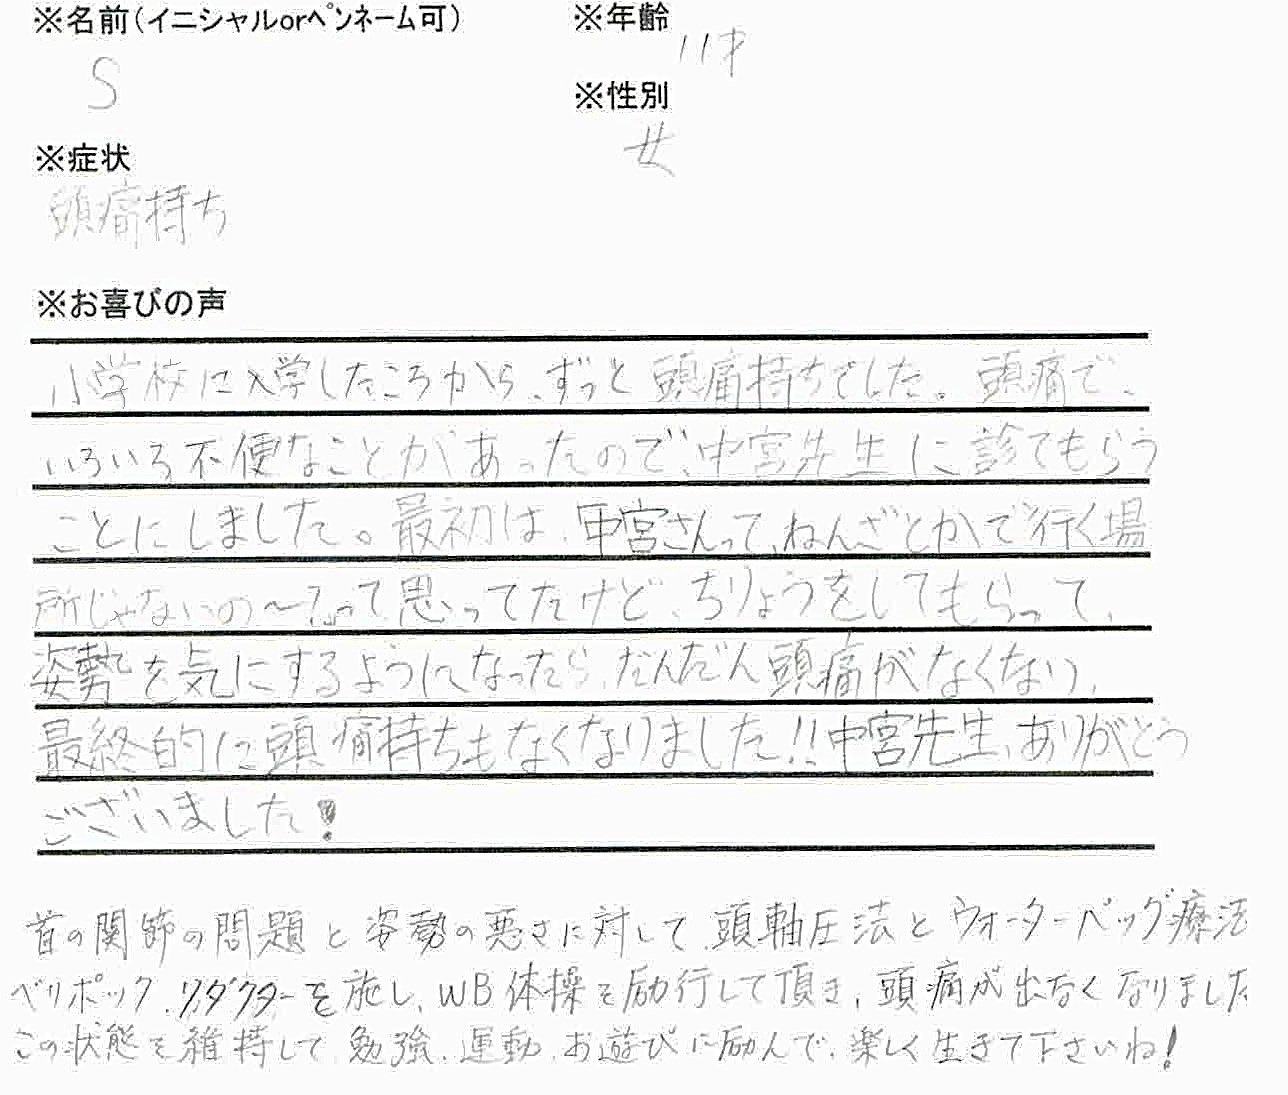 ※名前(イニシャルorペンネーム可)
S
※年齢
11才
※性別
女
※症状
頭痛持ち
※お喜びの声
小学校に入学したころから、ずっと頭痛持ちでした。頭痛で、
いろいろ不便なことがあったので、中宮先生に診てもらう
ことにしました。最初は、中宮さんって、ねんざとかで行く場
所じゃないの〜?って思ってたけど、ちりょうをしてもらって、
姿勢を気にするようになったら、だんだん頭痛がなくなり、
最終的に頭痛持ちもなくなりました!!中宮先生、ありがとう
ございました!
首の関節の問題と姿勢の悪さに対して、頭軸圧法とウォーターバッグ療法
ペリポック、リダクターを施し、WB体操を励行して頂き、頭痛が出なくなりました
この状態を維持して、勉強、運動、お遊びに励んで、楽しく生きて下さいね!